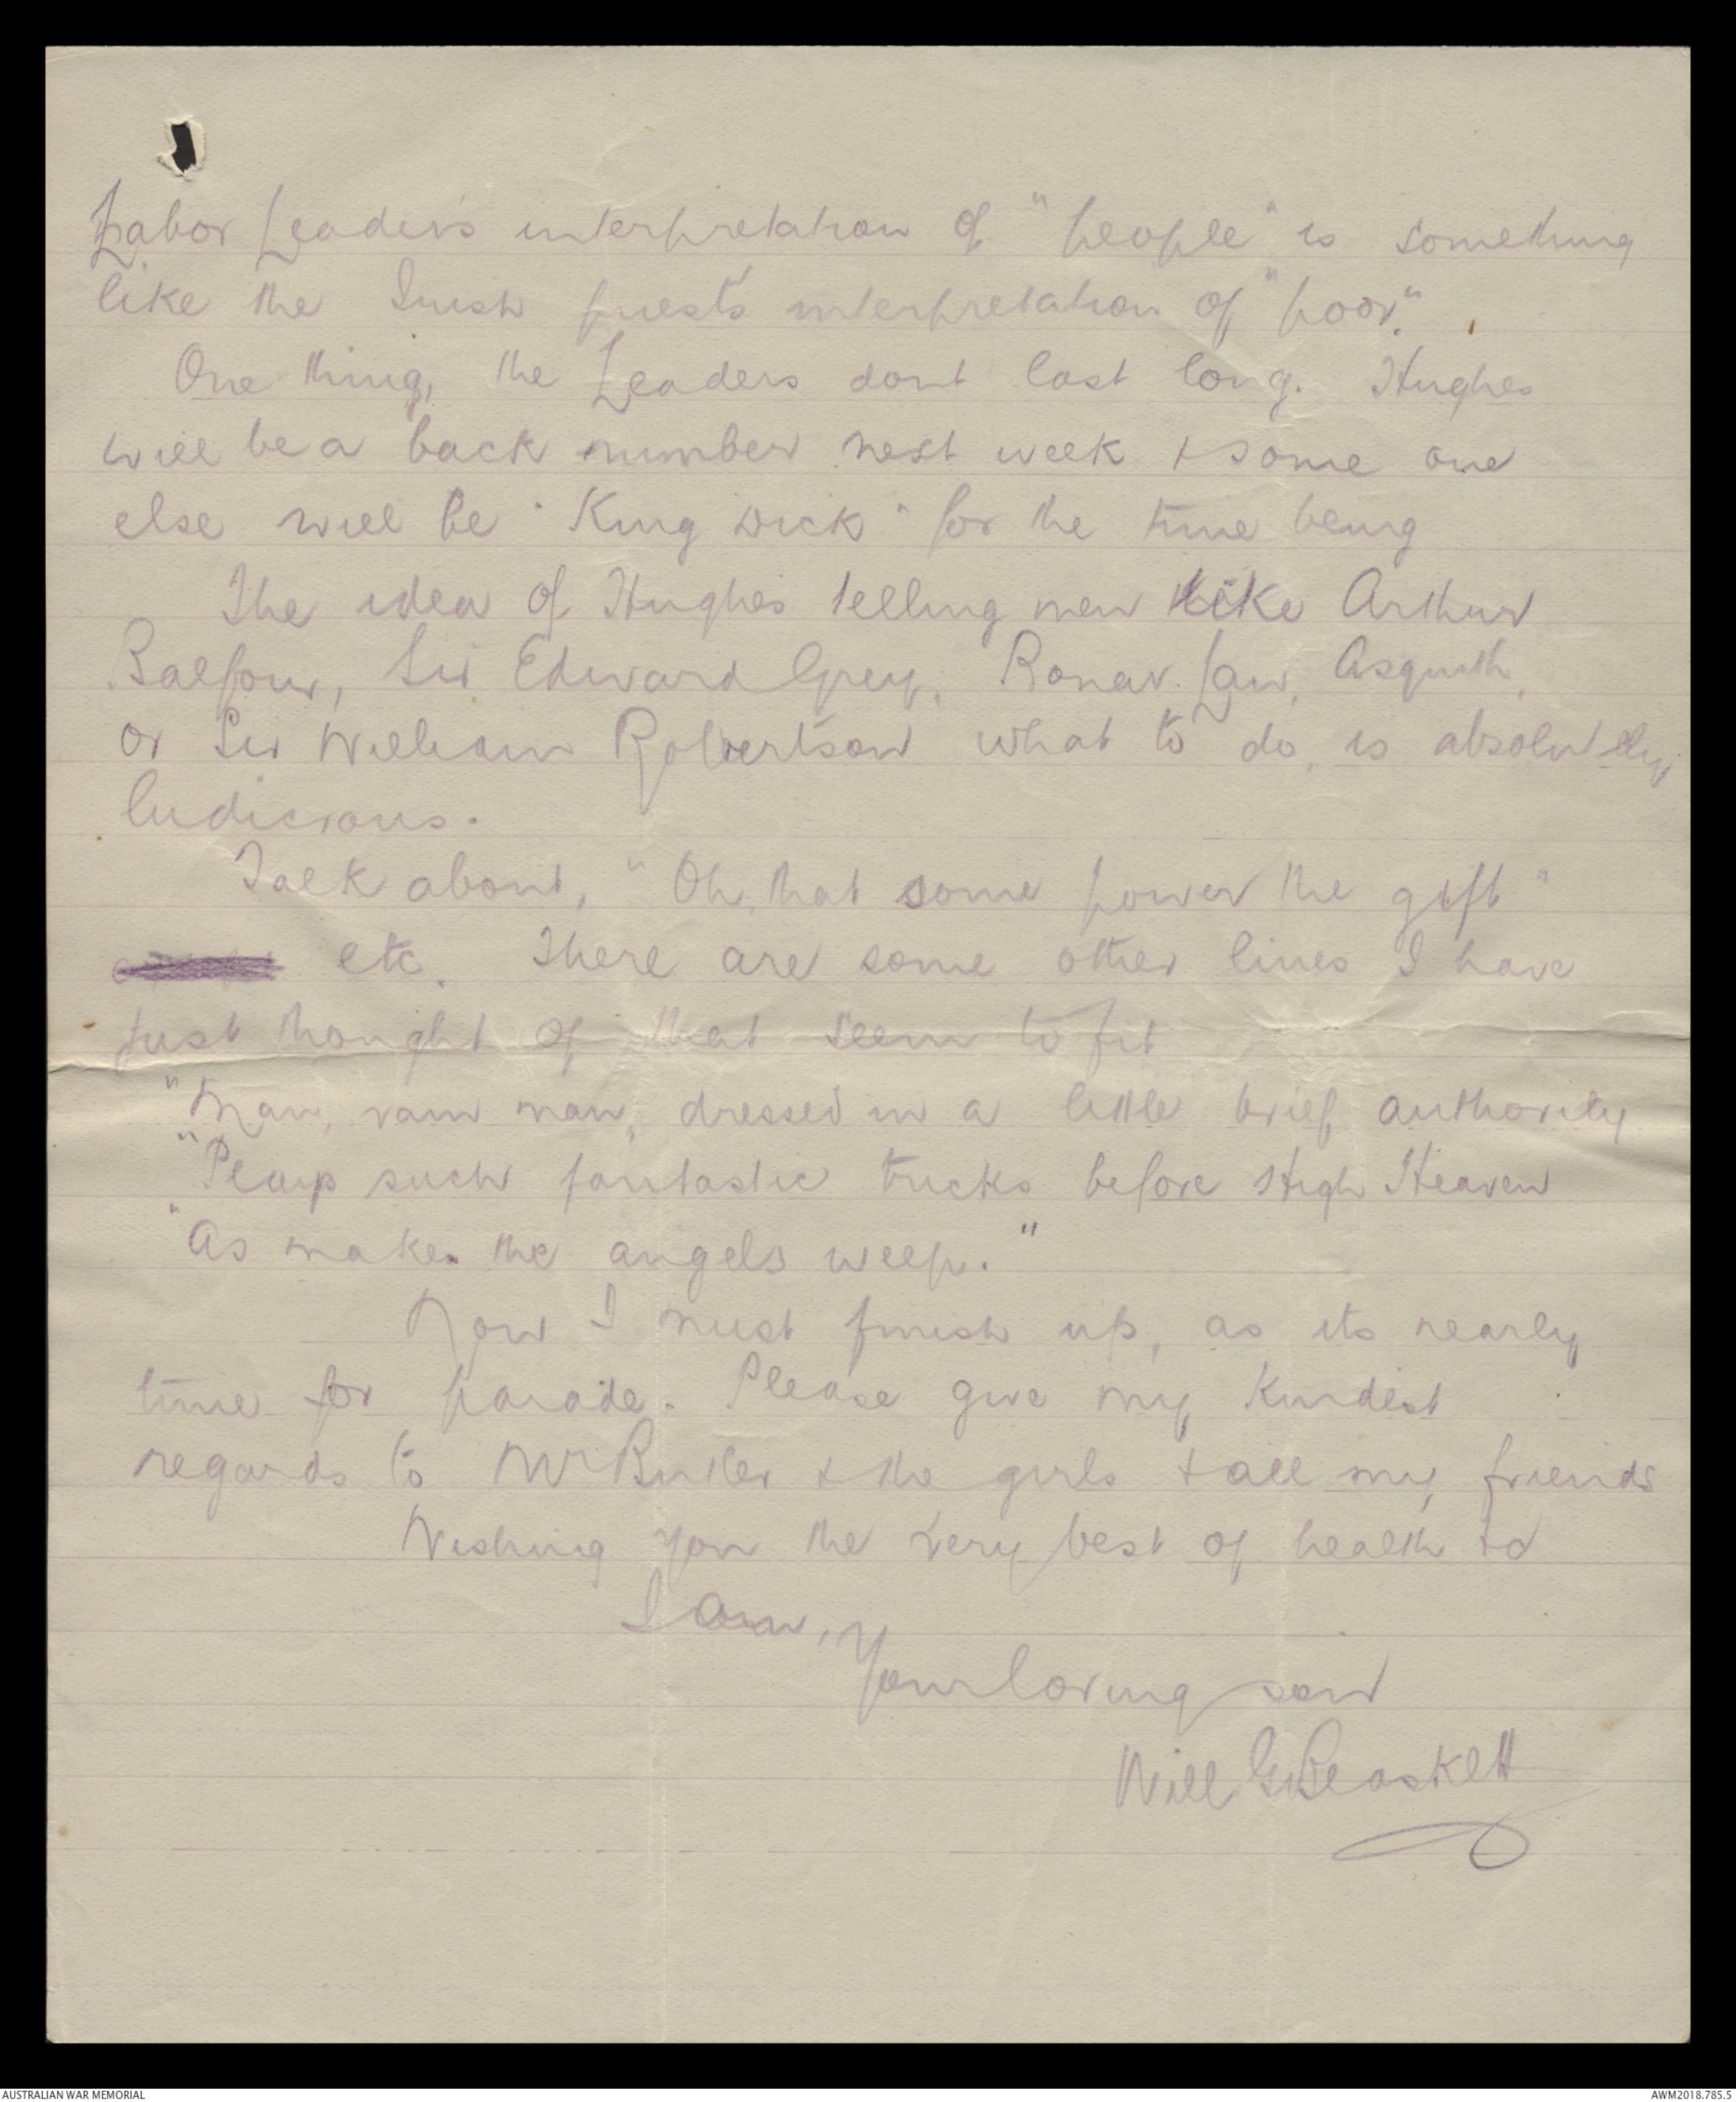 Labor Leader's interpretation of "people" is something
like the Irish priest's interpretation of "poor".
One thing, the Leaders dont last long. Hughes
will be a back number next week & some one
else will be "King Dick" for the time being
The idea of Hughes telling men like Arthur
Balfour, Sir Edward Grey, Bonar Law, Asquith,
or Sir William Robertson what to do, is absolutely
ludicrous.
Talk about, "Oh, that some power the gift"
etc. There are some other lines I have
just thought of that seem to fit
"Man, vain man, dressed in a little brief authority
"Plays such fantastic tricks before High Heaven
"As makes the angels weep."
Now I must finish up, as its nearly
time for parade. Please give my kindest
regards to Mr Butler & the girls & all my friends
Wishing you the very best of health &c
I am,
Your loving son
Will G Beaskett
AUSTRALIAN WAR MEMORIAL
AWM2018.785.5